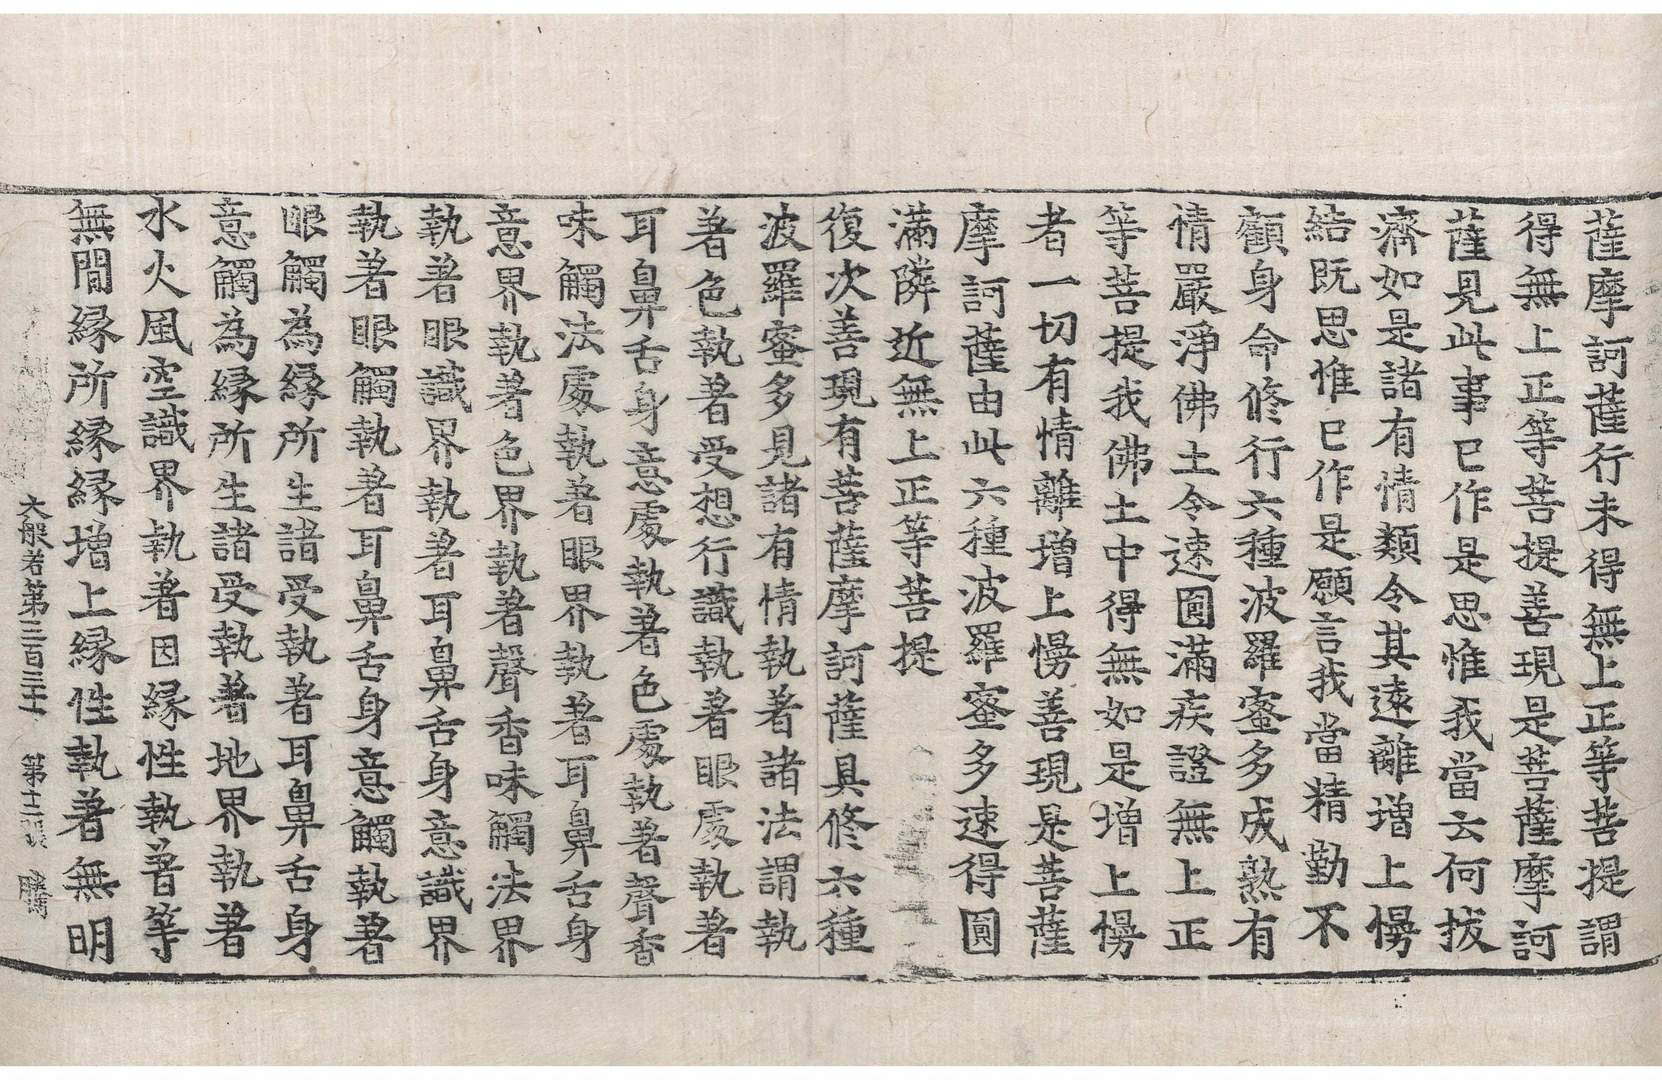 薩摩訶薩行未得無上正等菩提謂
得無上正等菩提善現是菩薩摩訶
薩見此事已作是思惟我當云何拔
濟如是諸有情類令其遠離增上慢
結既思惟已作是願言我當精勤不
顧身命修行六種波羅蜜多成熟有
情嚴淨佛土令速圓滿疾證無上正
等菩提我佛土中得無如是增上慢
者一切有情離增上慢善現是菩薩
摩訶薩由此六種波羅蜜多速得圓
滿隣近無上正等菩提
復次善現有菩薩摩訶薩具修六種
波羅蜜多見諸有情執著諸法謂執
著色執著受想行識執著眼處執著
耳鼻舌身意處執著色處執著聲香
味觸法處執著眼界執著耳鼻舌身
意界執著色界執著聲香味觸法界
執著眼識界執著耳鼻舌身意識界
執著眼觸執著耳鼻舌身意觸執著
眼觸為縁所生諸受執著耳鼻舌身
意觸為縁所生諸受執著地界執著
水火風空識界執著因縁性執著等
無間縁所縁縁增上縁性執著無明
大般若第三百三十 第十二張